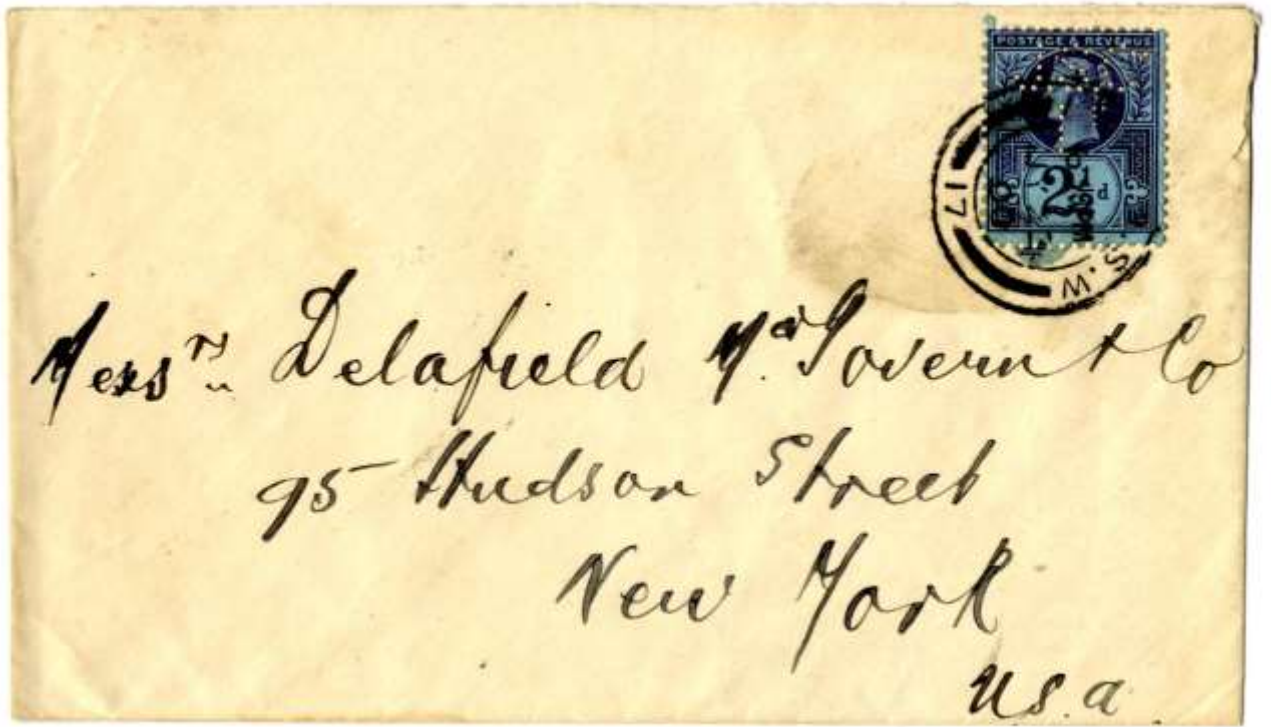 POSTAGE & REVENUE
2½d
17
S.W.
Messrs Delafield Mc Govern & Co
95 Hudson Street
New York
U.S.a.